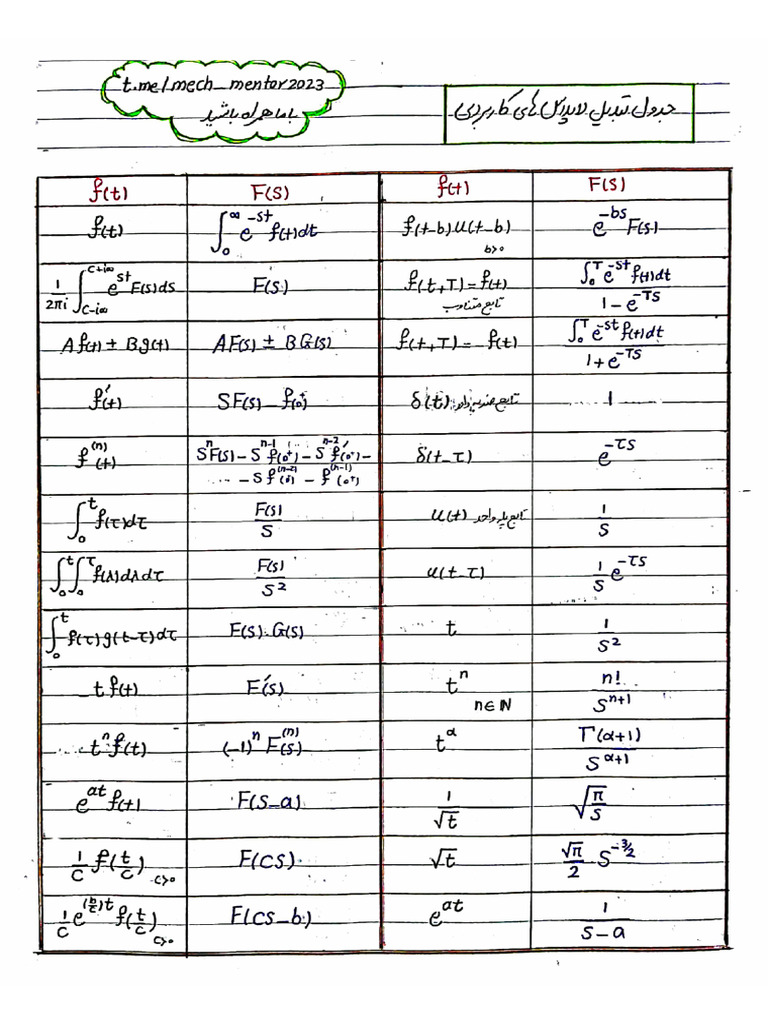 t.me/mech_mentor2023
با ما همراه باشید
جدول تبدیل لاپلاس های کاربردی
f(t) F(S) f(t) F(S)
f(t) ∫₀^∞ e^{-st} f(t)dt f(t-b)u(t-b) b>0 e^{-bs} F(s)
1/2πi ∫_{C-i∞}^{C+i∞} e^{st} F(s)ds F(S) f(t+T)=f(t) تابع متناوب ∫₀^T e^{-st} f(t)dt / 1-e^{-TS}
A f(t) ± B g(t) AF(s) ± BG(s) f(t+T) = -f(t) ∫₀^T e^{-st} f(t)dt / 1+e^{-TS}
f′(t) SF(s) - f(0⁺) δ(t) تابع ضربه واحد 1
f^{(n)}(t) S^n F(s) - S^{n-1} f(0⁺) - S^{n-2} f′(0⁺) - ... - S f^{(n-2)}(0⁺) - f^{(n-1)}(0⁺) δ(t-τ) e^{-τS}
∫₀^t f(τ)dτ F(s)/S u(t) تابع پله واحد 1/S
∫₀^t ∫₀^τ f(λ)dλdτ F(s)/S² u(t-τ) 1/S e^{-τS}
∫₀^t f(τ)g(t-τ)dτ F(s).G(s) t 1/S²
t f(t) F′(s) t^n n∈ℕ n!/S^{n+1}
t^n f(t) (-1)^n F^{(n)}(s) t^α Γ(α+1)/S^{α+1}
e^{at} f(t) F(S-a) 1/√t √(π/S)
1/C f(t/C) C>0 F(CS) √t √π/2 S^{-3/2}
1/C e^{(b/c)t} f(t/C) C>0 F(CS-b) e^{at} 1/S-a